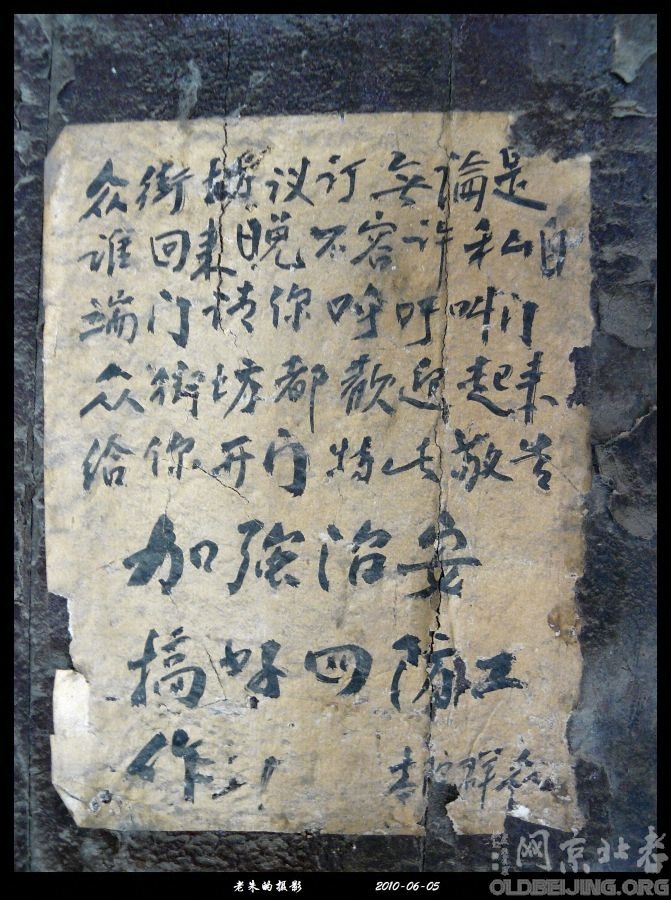 众街议订無論是
谁回来晚不容许私自
端门请你呼吁叫门
众街坊都歡迎起来
给你开门特此敬告
加强治安
搞好四防工
作!
本院群众
老北京网
OLDBEIJING.ORG
老朱的摄影 2010-06-05